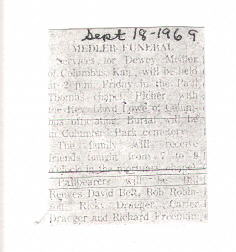 Sept 18-1969
MEDLER FUNERAL
Services for Dewey Medler
of Columbus, Kan., will be held
at 2 p.m. Friday in the
Thomas chapel, Picher with
the Rev. Lloyd Lowe of Colum-
bus officiating. Burial will be
in Columbus Park cemetery.
The family will receive
friends tonight from 7 to 8
o'clock in the
Pallbearers will be Bill
Reeves David Bell, Bob Robin-
Ricky Draeger, Carter
Draeger and Richard Freeman.